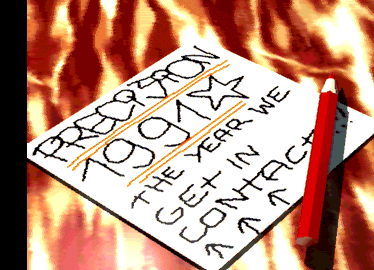 PRECISION
1991☆
THE YEAR WE
GET IN
CONTACT